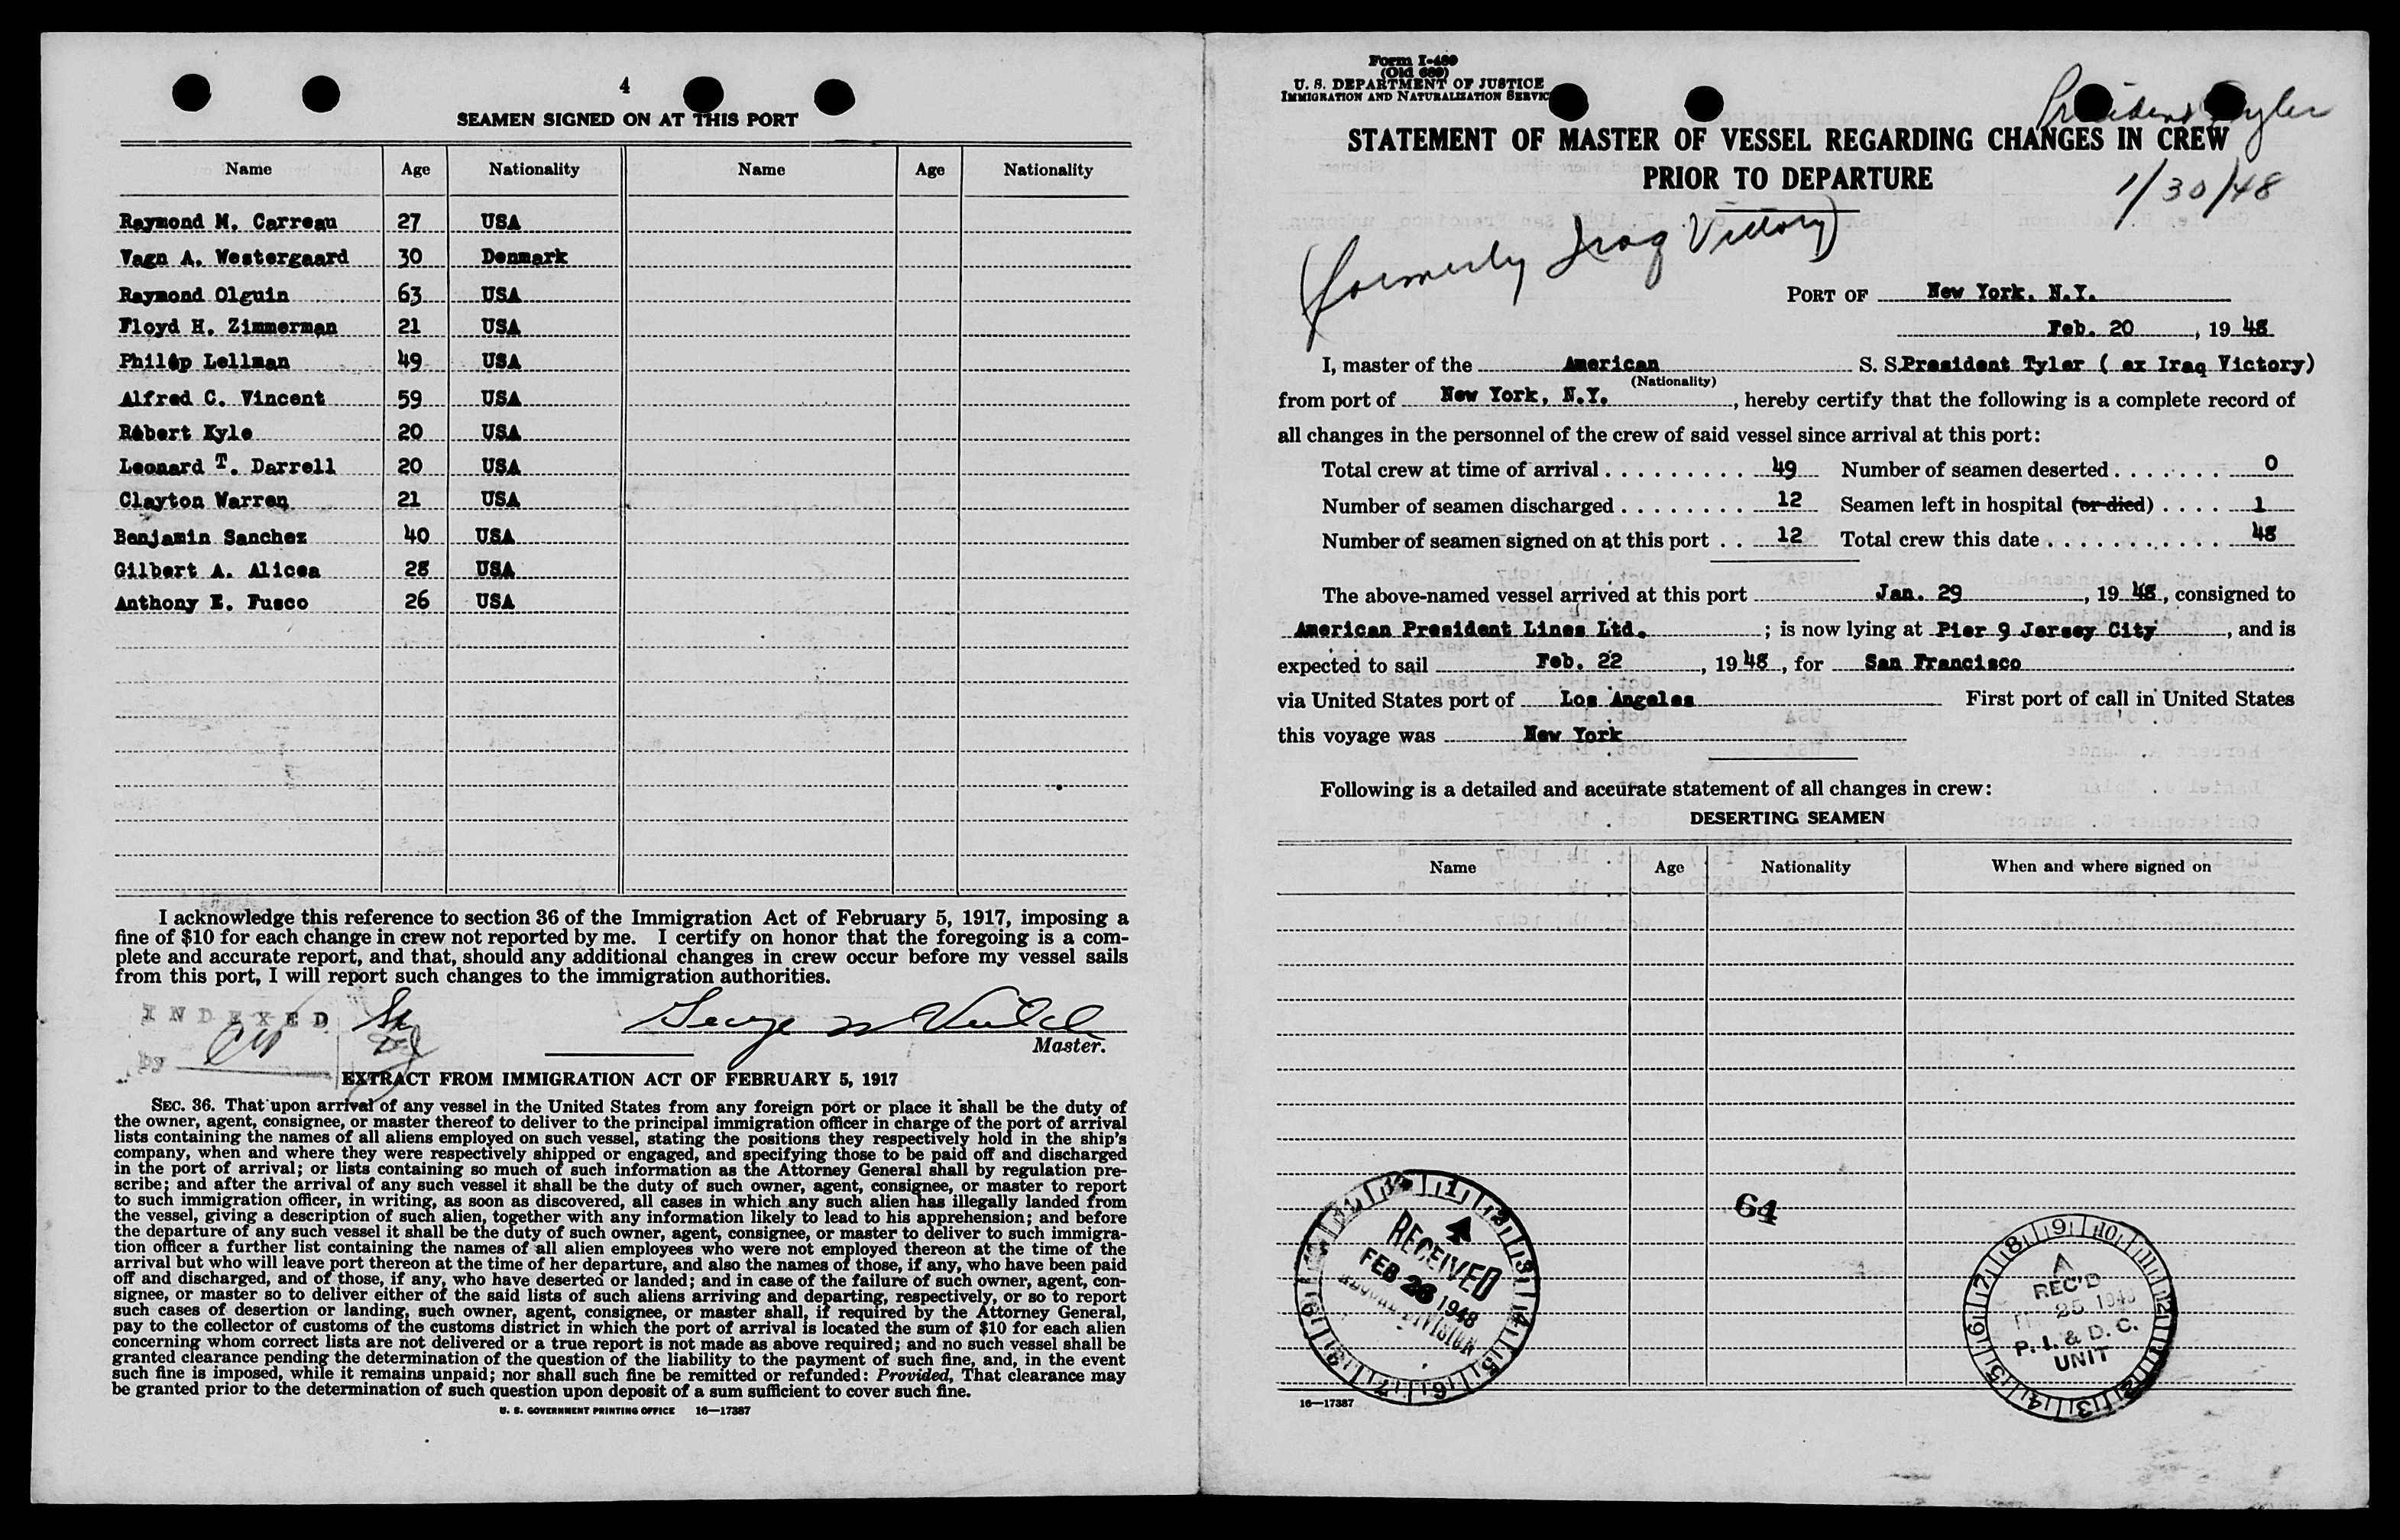 4
SEAMEN SIGNED ON AT THIS PORT
Name Age Nationality Name Age Nationality
Raymond M. Carreau 27 USA
Vagn A. Westergaard 30 Denmark
Raymond Olguin 63 USA
Floyd H. Zimmerman 21 USA
Philip Lellman 49 USA
Alfred C. Vincent 59 USA
Robert Kyle 20 USA
Leonard T. Darrell 20 USA
Clayton Warren 21 USA
Benjamin Sanchez 40 USA
Gilbert A. Alicea 28 USA
Anthony E. Fusco 26 USA
I acknowledge this reference to section 36 of the Immigration Act of February 5, 1917, imposing a
fine of $10 for each change in crew not reported by me. I certify on honor that the foregoing is a com-
plete and accurate report, and that, should any additional changes in crew occur before my vessel sails
from this port, I will report such changes to the immigration authorities.
INDEXED
by
George
Master.
EXTRACT FROM IMMIGRATION ACT OF FEBRUARY 5, 1917
SEC. 36. That upon arrival of any vessel in the United States from any foreign port or place it shall be the duty of
the owner, agent, consignee, or master thereof to deliver to the principal immigration officer in charge of the port of arrival
lists containing the names of all aliens employed on such vessel, stating the positions they respectively hold in the ship's
company, when and where they were respectively shipped or engaged, and specifying those to be paid off and discharged
in the port of arrival; or lists containing so much of such information as the Attorney General shall by regulation pre-
scribe; and after the arrival of any such vessel it shall be the duty of such owner, agent, consignee, or master to report
to such immigration officer, in writing, as soon as discovered, all cases in which any such alien has illegally landed from
the vessel, giving a description of such alien, together with any information likely to lead to his apprehension; and before
the departure of any such vessel it shall be the duty of such owner, agent, consignee, or master to deliver to such immigra-
tion officer a further list containing the names of all alien employees who were not employed thereon at the time of the
arrival but who will leave port thereon at the time of her departure, and also the names of those, if any, who have been paid
off and discharged, and of those, if any, who have deserted or landed; and in case of the failure of such owner, agent, con-
signee, or master so to deliver either of the said lists of such aliens arriving and departing, respectively, or so to report
such cases of desertion or landing, such owner, agent, consignee, or master shall, if required by the Attorney General,
pay to the collector of customs of the customs district in which the port of arrival is located the sum of $10 for each alien
concerning whom correct lists are not delivered or a true report is not made as above required; and no such vessel shall be
granted clearance pending the determination of the question of the liability to the payment of such fine, and, in the event
such fine is imposed, while it remains unpaid; nor shall such fine be remitted or refunded: Provided, That clearance may
be granted prior to the determination of such question upon deposit of a sum sufficient to cover such fine.
U. S. GOVERNMENT PRINTING OFFICE 16—17387
Form I-489
(Old 689)
U. S. DEPARTMENT OF JUSTICE
IMMIGRATION AND NATURALIZATION SERVICE
President Tyler
STATEMENT OF MASTER OF VESSEL REGARDING CHANGES IN CREW
PRIOR TO DEPARTURE
1/30/48
(formerly Iraq Victory)
PORT OF New York, N.Y.
Feb. 20, 1948
I, master of the American S. S. President Tyler ( ex Iraq Victory)
(Nationality)
from port of New York, N.Y., hereby certify that the following is a complete record of
all changes in the personnel of the crew of said vessel since arrival at this port:
Total crew at time of arrival......... 49 Number of seamen deserted....... 0
Number of seamen discharged........ 12 Seamen left in hospital (or died).... 1
Number of seamen signed on at this port.. 12 Total crew this date........... 48
The above-named vessel arrived at this port Jan. 29, 1948, consigned to
American President Lines Ltd.; is now lying at Pier 9 Jersey City, and is
expected to sail Feb. 22, 1948, for San Francisco.
via United States port of Los Angeles First port of call in United States
this voyage was New York
Following is a detailed and accurate statement of all changes in crew:
DESERTING SEAMEN
Name Age Nationality When and where signed on
64
RECEIVED
FEB 26 1948
DIVISION
REC'D
25 1948
P. I. & D. C.
UNIT
16—17387